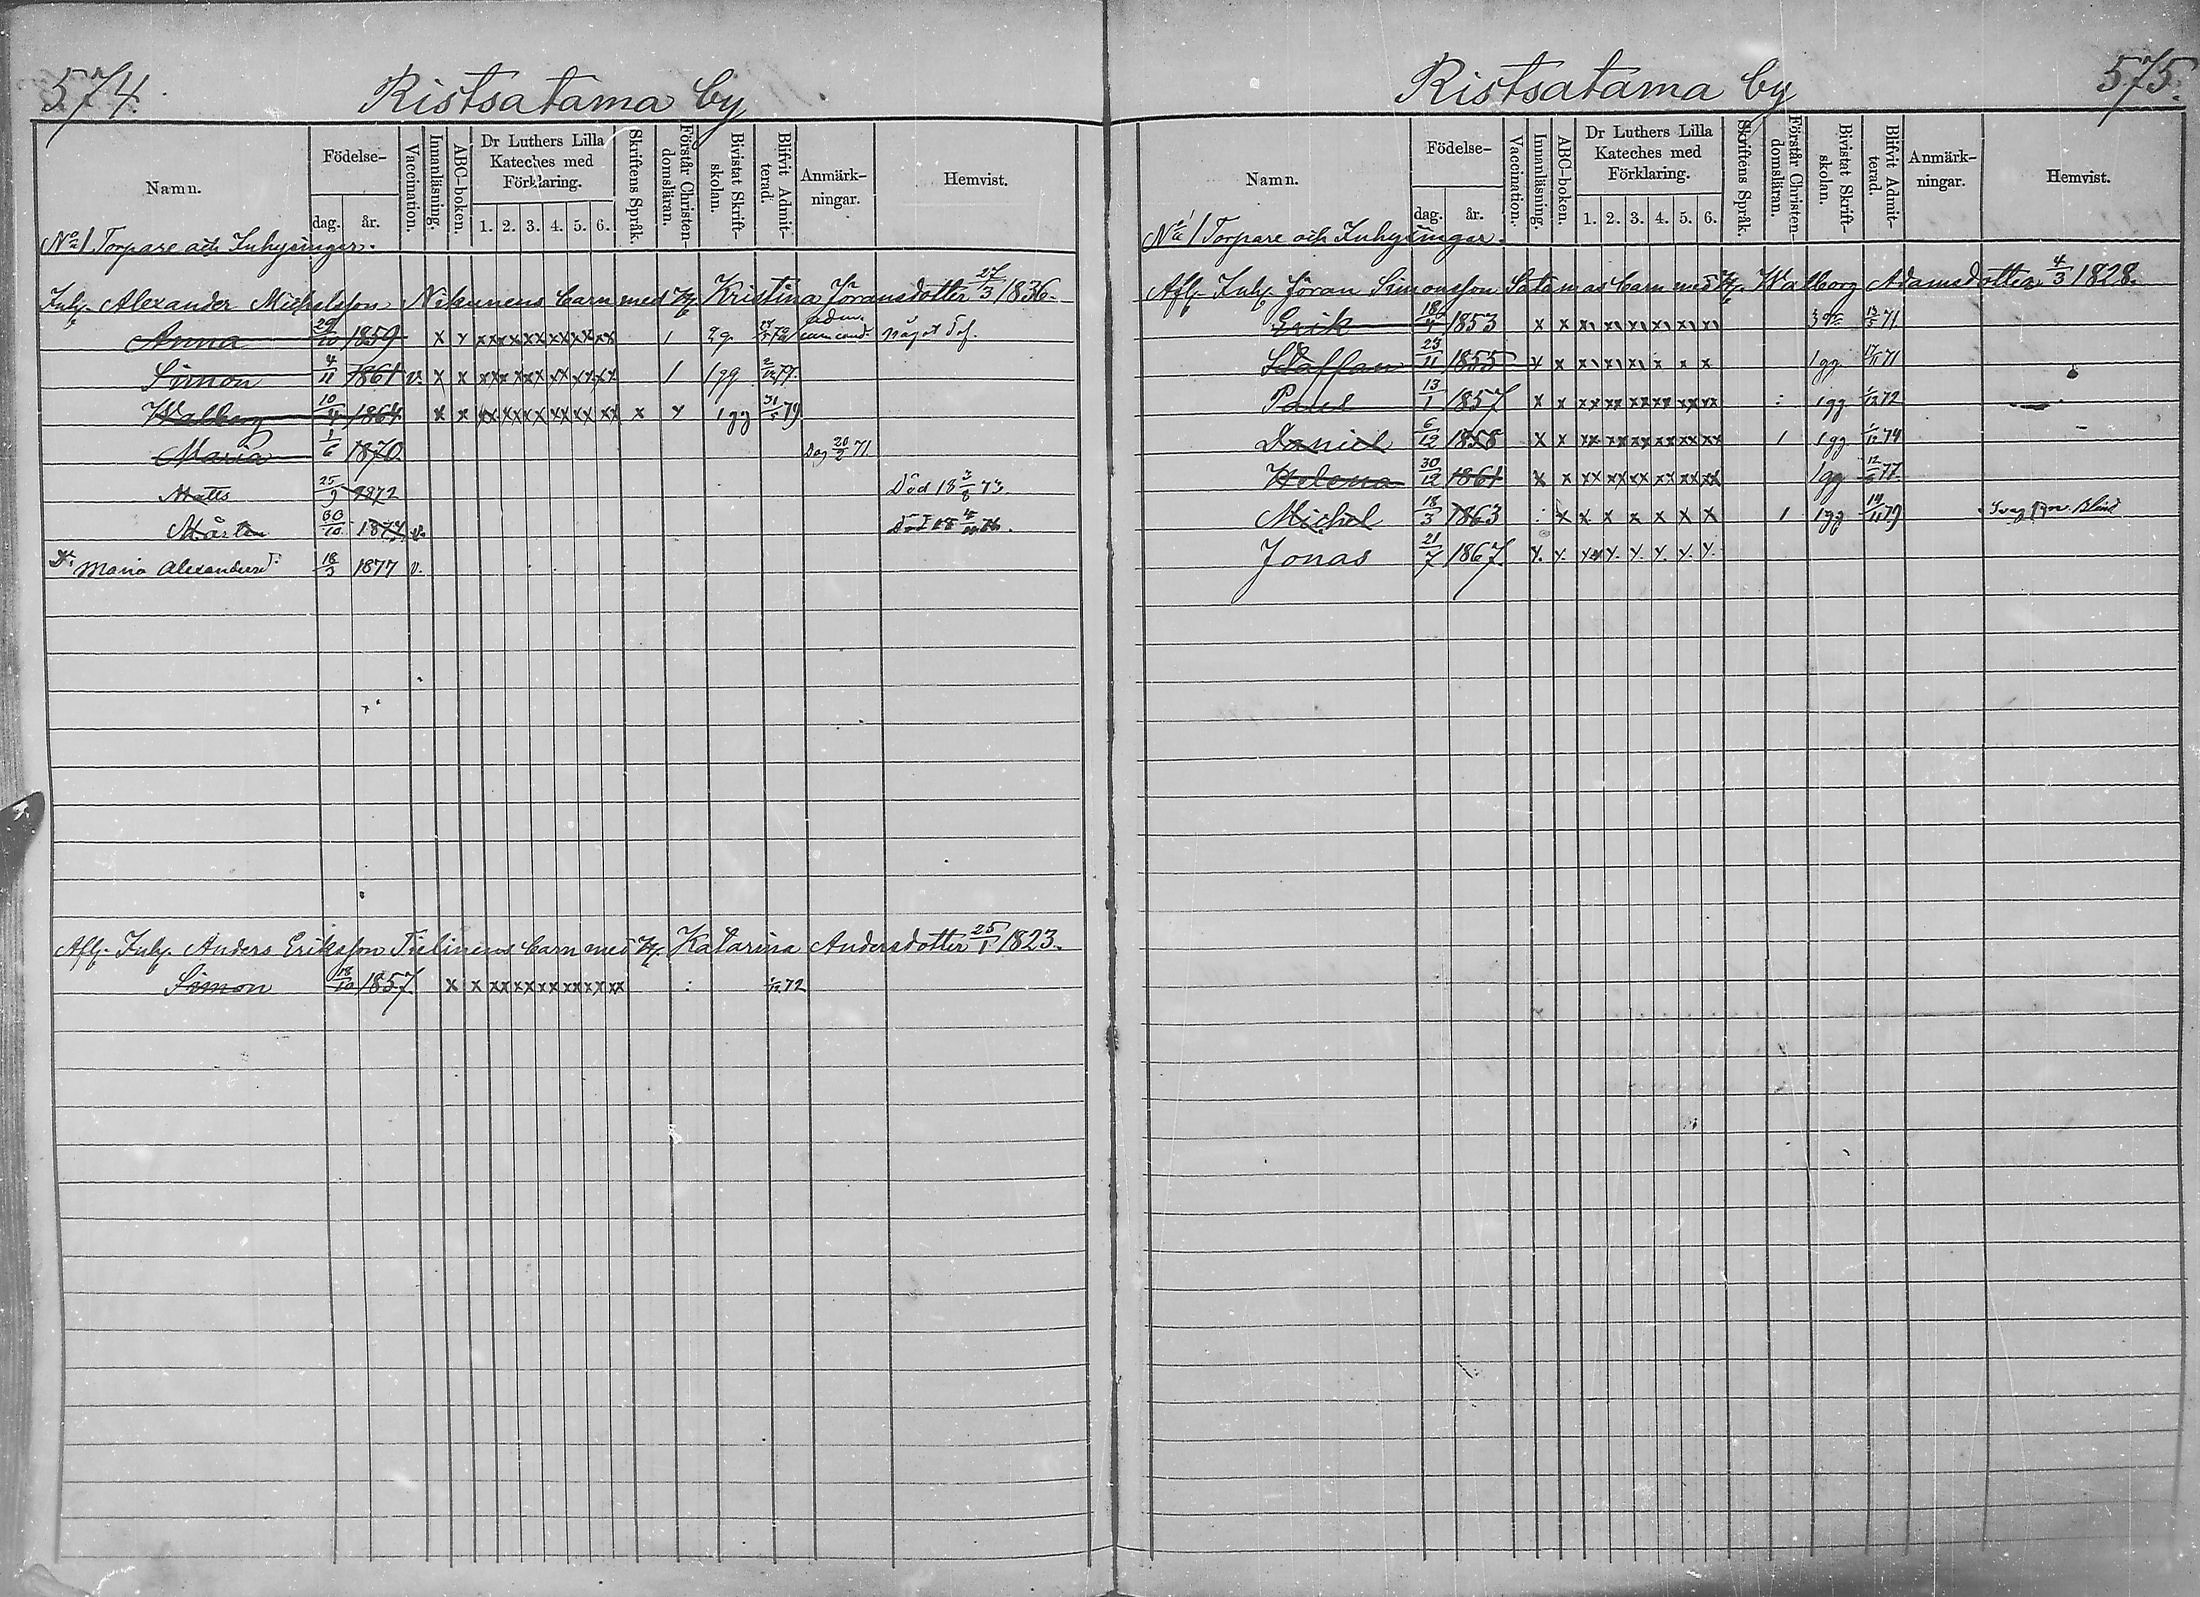 574.
Ristsatama by
Namn.
Födelse-
dag.
år.
Vaccination.
Innanläsning.
ABC-boken.
Dr Luthers Lilla
Kateches med
Förklaring.
1. 2. 3. 4. 5. 6.
Skriftens Språk.
Förstår Christen-
domsläran.
Bivistat Skrift-
skolan.
Blifvit Admit-
terad.
Anmärk-
ningar.
Hemvist.
No 1. Torpare och Inhysingar.
Inh. Alexander Michelsson Nikunens barn med H. Kristina Jöransdotter 27/3 1836.
Anna 29/10 1859 x x xx xx xx xx xx xx 1 2g. något def.
Simon 4/11 1861 v. x x xx xx xx xx xx xx 1 1gg 77.
Walborg 10/4 1864 x x xx xx xx xx xx xx x x 1gg 31/5 79
Maria 1/6 1870 20/2 71.
Matts 25/9 1872 Död 18 3/8 73.
Mårten 30/10 1874 v.
Maria Alexandersd: 18/3 1877 v.
Afl. Inh. Anders Eriksson Tielinens barn med H. Katarina Andersdotter 25/1 1823.
Simon 18/10 1857. x x xx xx xx xx xx xx : 72
575.
Ristsatama by
Namn.
Födelse-
dag.
år.
Vaccination.
Innanläsning.
ABC-boken.
Dr Luthers Lilla
Kateches med
Förklaring.
1. 2. 3. 4. 5. 6.
Skriftens Språk.
Förstår Christen-
domsläran.
Bivistat Skrift-
skolan.
Blifvit Admit-
terad.
Anmärk-
ningar.
Hemvist.
No 1 Torpare och Inhysingar.
Afl. Inh. Jöran Simonsson Satamas barn med H. Walborg Adamsdotter 4/3 1828.
Erik 18/4 1853 x x 71
Staffan 23/11 1855 x x 1gg. 71
Paul 13/1 1857 x x xx xx xx xx xx xx : 1gg 72
Daniel 6/12 1858 x x xx xx xx xx xx xx 1 1gg 74
Helena 30/12 1861 x x xx xx xx xx xx xx 1gg 77.
Michel 18/3 1863 : x x x x x x x 1 1gg 79 Blind
Jonas 21/7 1867.